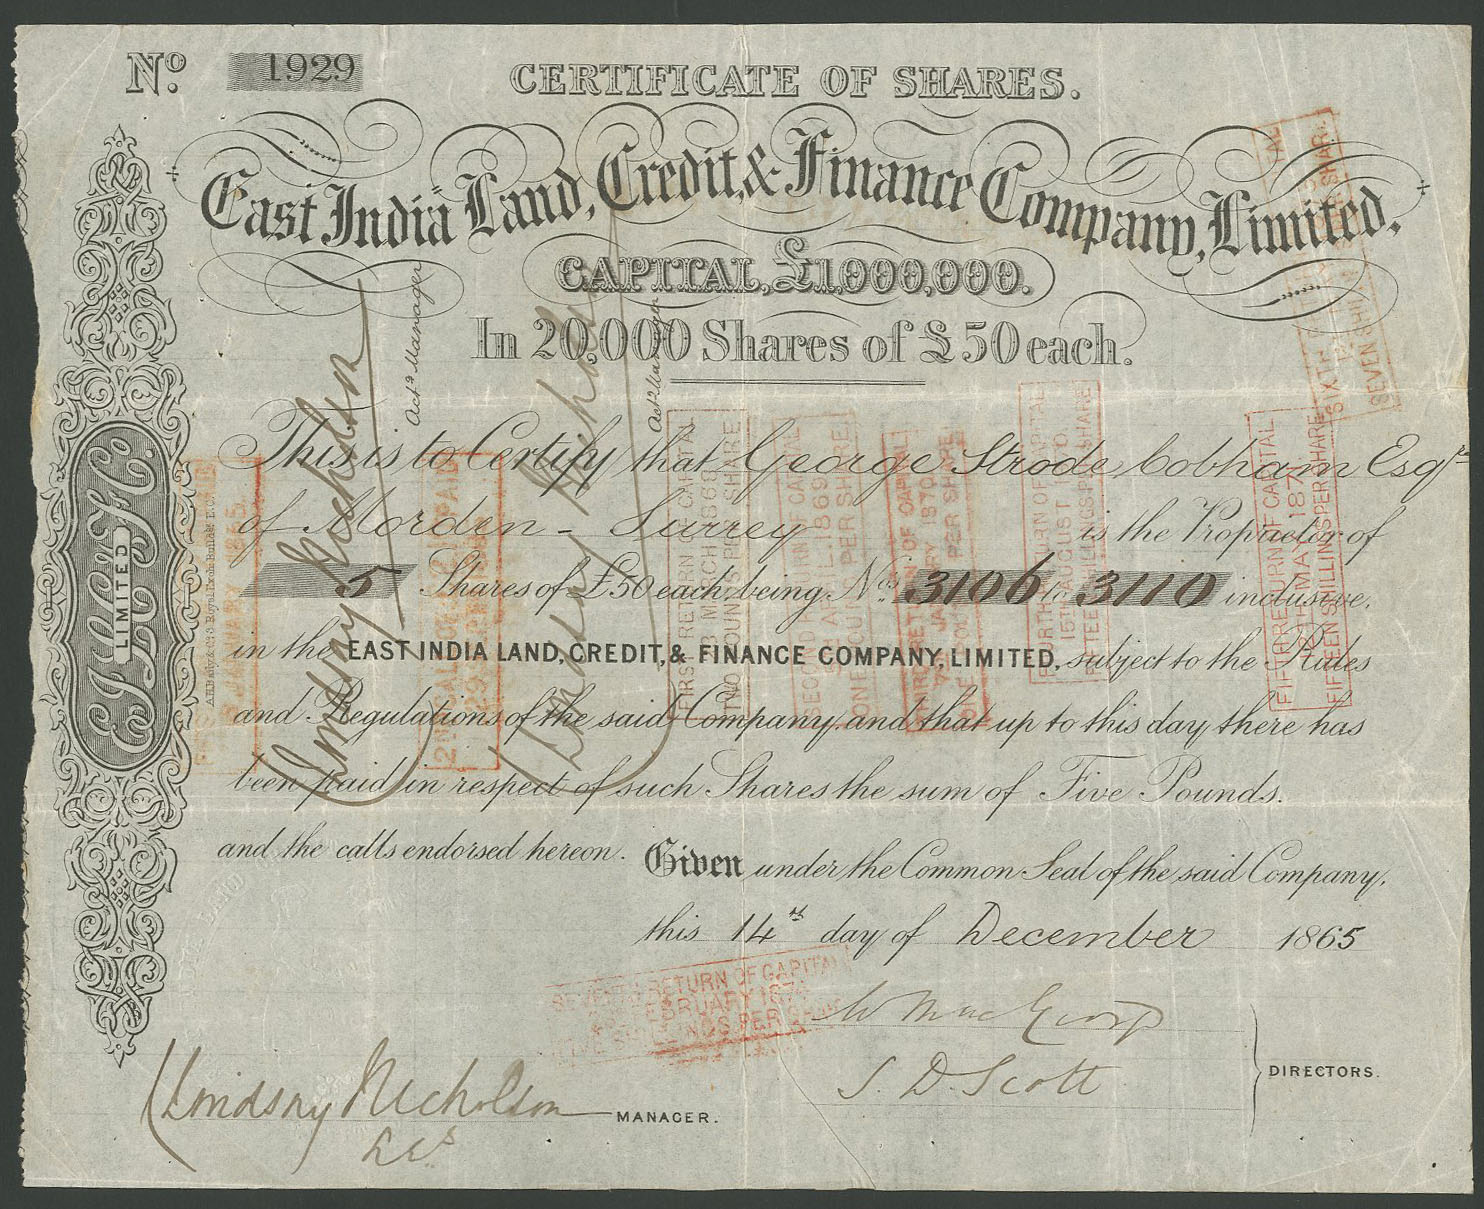 No. 1929
CERTIFICATE OF SHARES.
East India Land, Credit, & Finance Company, Limited.
CAPITAL, £1,000,000.
In 20,000 Shares of £50 each.
This is to Certify that George Strode Cobham Esqre
of Morden - Surrey is the Proprietor of
5 Shares of £50 each, being Nos. 3106 to 3110 inclusive,
in the EAST INDIA LAND, CREDIT, & FINANCE COMPANY, LIMITED, subject to the Rules
and Regulations of the said Company, and that up to this day there has
been paid in respect of such Shares the sum of Five Pounds.
and the calls endorsed hereon.
Given under the Common Seal of the said Company,
this 14th day of December 1865
S. D. Scott
DIRECTORS.
Lindsay Nicholson MANAGER.
E I L C & F Co.
LIMITED
Lindsay Nicholson
Actg Manager
Lindsay Nicholson
Actg Manager
JANUARY 1866
2ND CALL PAID
FIRST RETURN OF CAPITAL
MARCH 1868
TWO POUNDS PER SHARE
SECOND RETURN OF CAPITAL
APRIL 1869
ONE POUND PER SHARE
THIRD RETURN OF CAPITAL
JANUARY 1870
ONE POUND PER SHARE
FOURTH RETURN OF CAPITAL
15TH AUGUST 1870
FIFTEEN SHILLINGS PER SHARE
FIFTH RETURN OF CAPITAL
MAY 187
FIFTEEN SHILLINGS PER SHARE
SIXTH
SEVEN SHILL
SEVENTH RETURN OF CAPITAL
FEBRUARY 1874
SHILLINGS PER SHARE